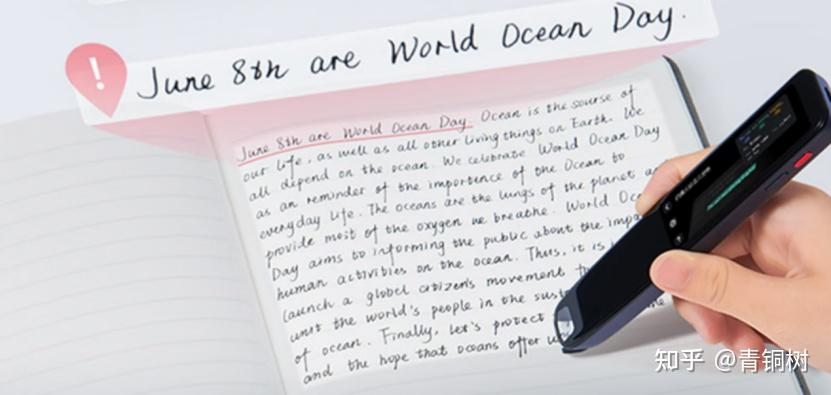 !
June 8th are World Ocean Day.
June 8th are World Ocean Day. Ocean is the sourse of
our life, as well as all other living things on Earth. We
all depend on the ocean. We celebrate World Ocean Day
as an reminder of the importance of the Ocean to
everyday life. The oceans are the lungs of the planet a
provide most of the oxygen we breathe. World Oc
Day aims to informing the public about the impa
human activities on the ocean. Thus, it is
launch a globel citizen's movement
unit the world's people in the sust
of ocean. Finally, let's protect the
and the hope that oceans offer
知乎 @青铜树